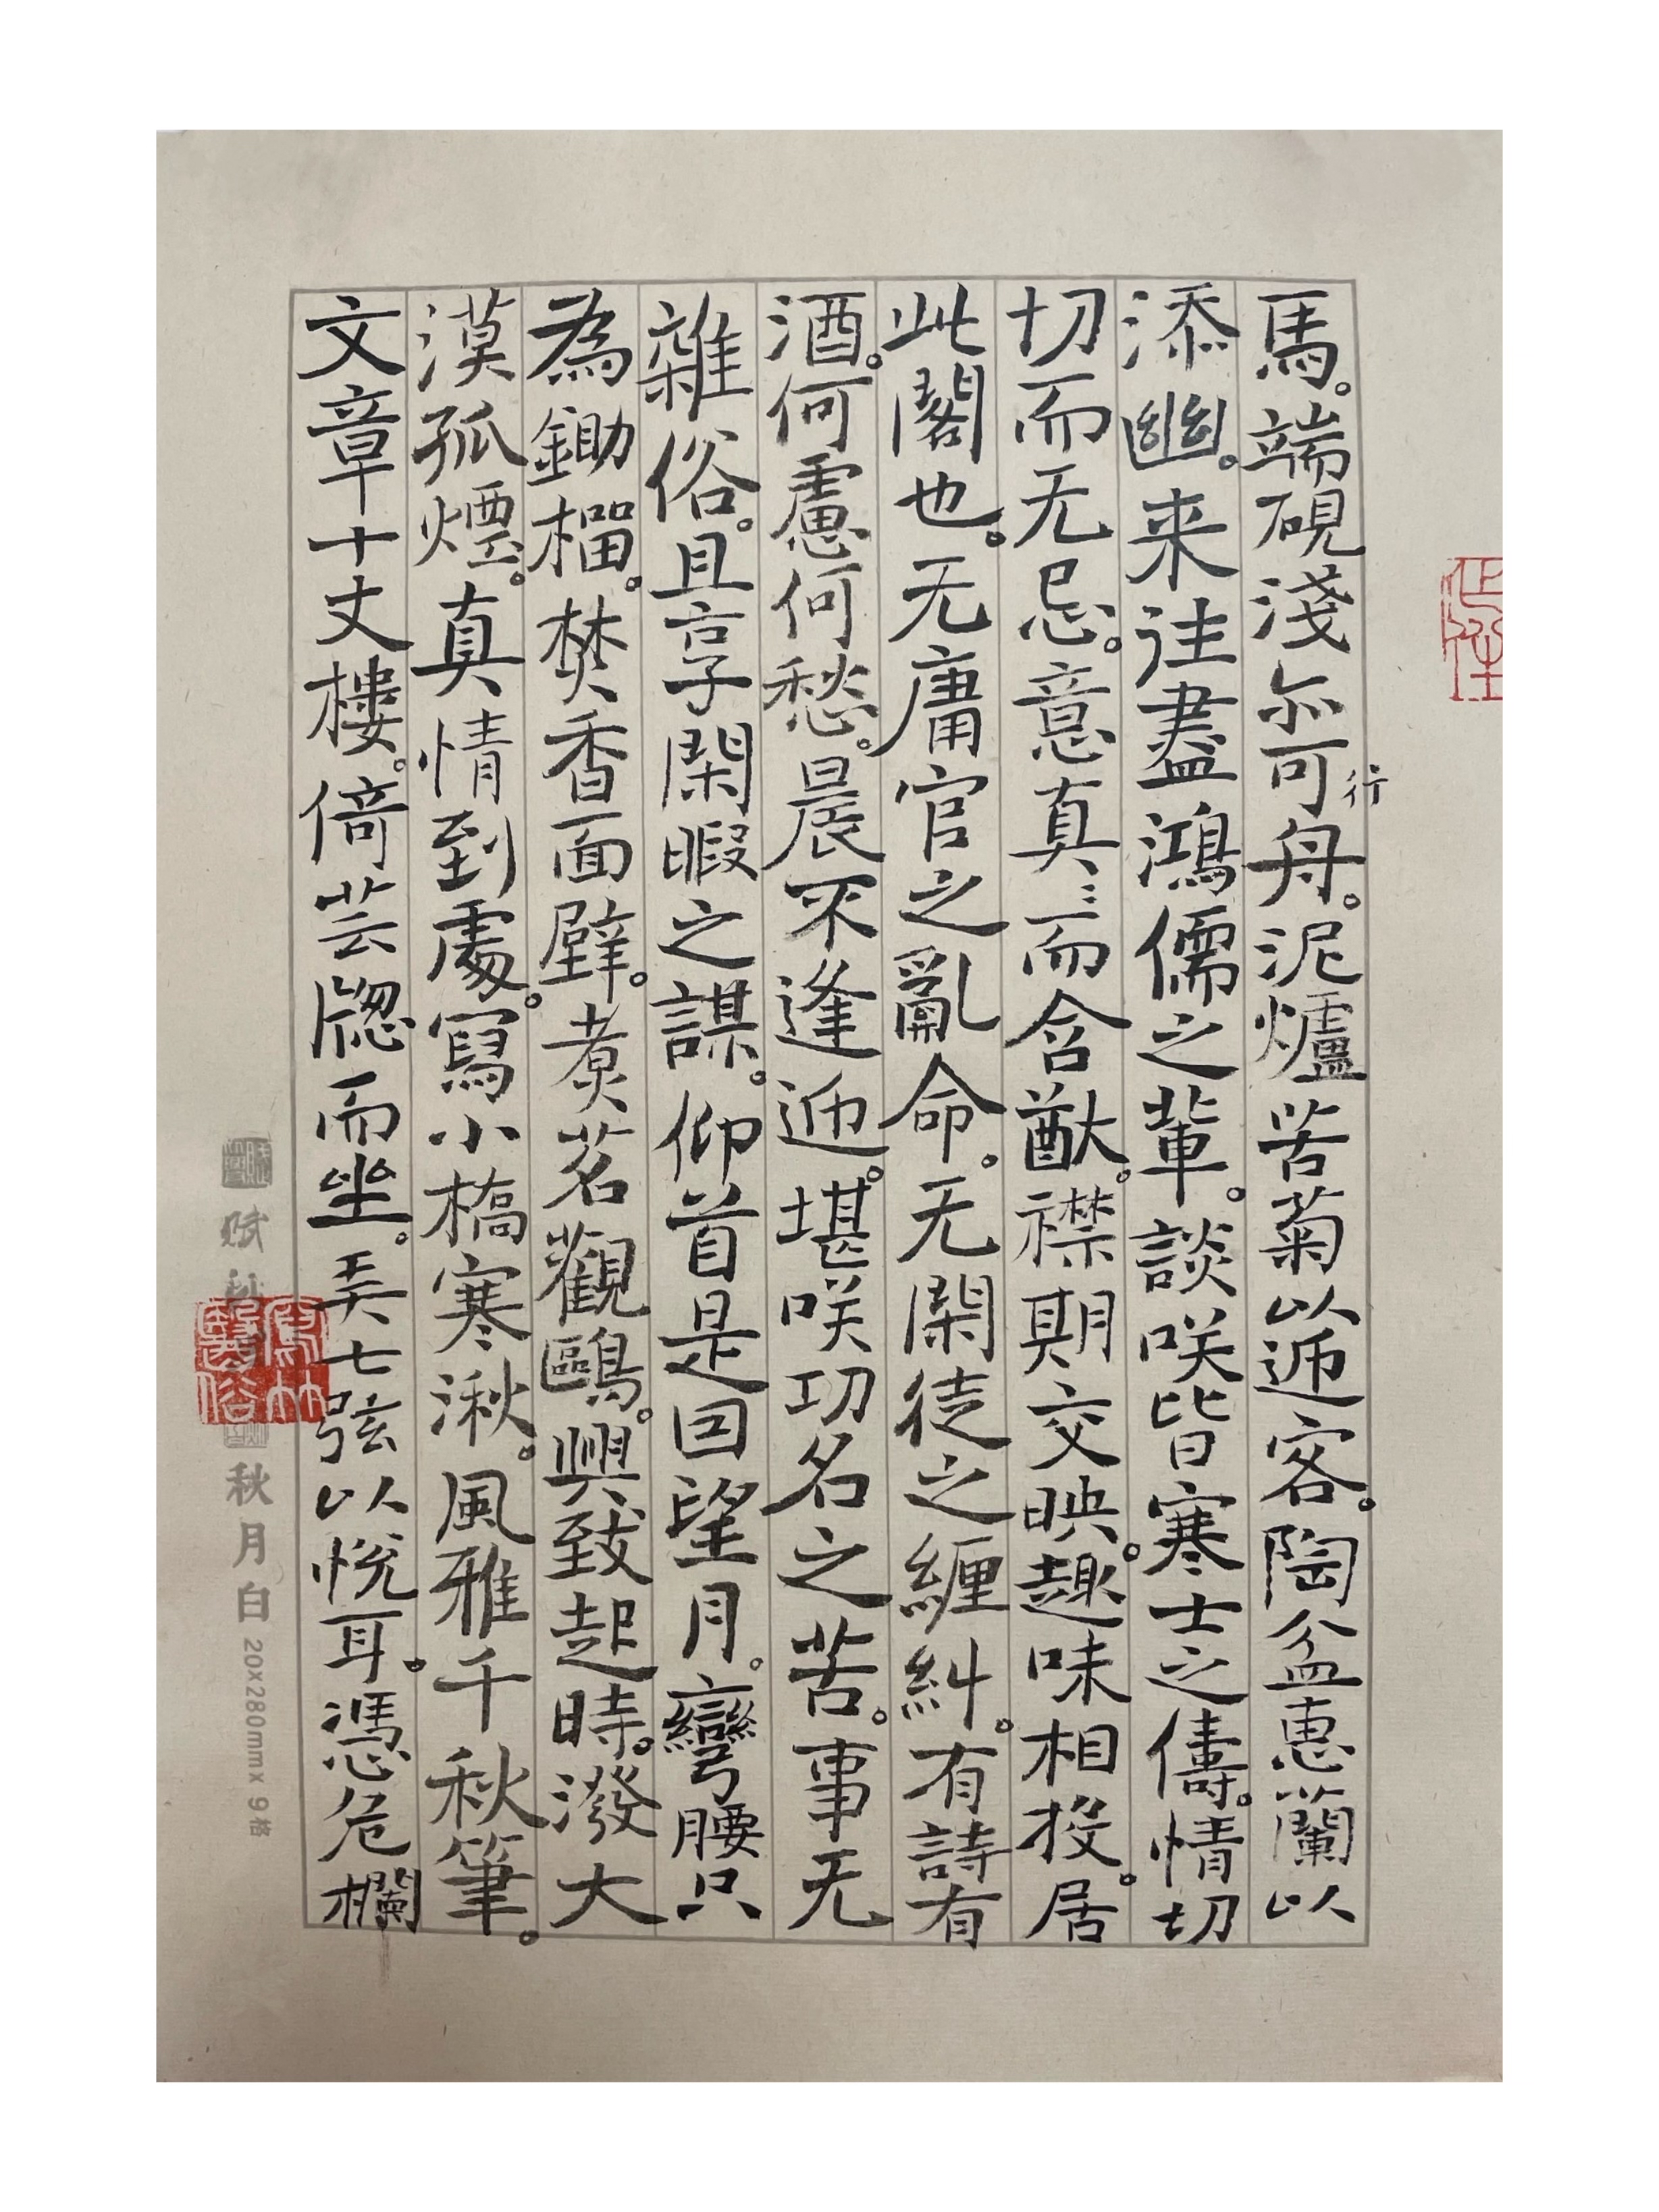 馬。端硯淺亦可行舟。泥爐苦菊以迊客。陶盆惠蘭以
添幽。来往盡鴻儒之輩。談咲皆寒士之儔。情切
切而无忌。意真〻而含猷。襟期交映。趣味相投。居
此閣也。无庸官之亂命。无閑徒之纏糾。有詩有
酒。何慮何愁。晨不逢迊。堪咲功名之苦。事无
雜俗。且享閑暇之謀。仰首是因望月。彎腰只
為鋤榴。焚香面壁。煮茗觀鷗。興致起時。潑大
漠孤煙。真情到處。寫小橋寒湫。風雅千秋筆。
文章十丈樓。倚芸牎而坐。弄七弦以悦耳。憑危欄
秋月白 20x280mmx9格